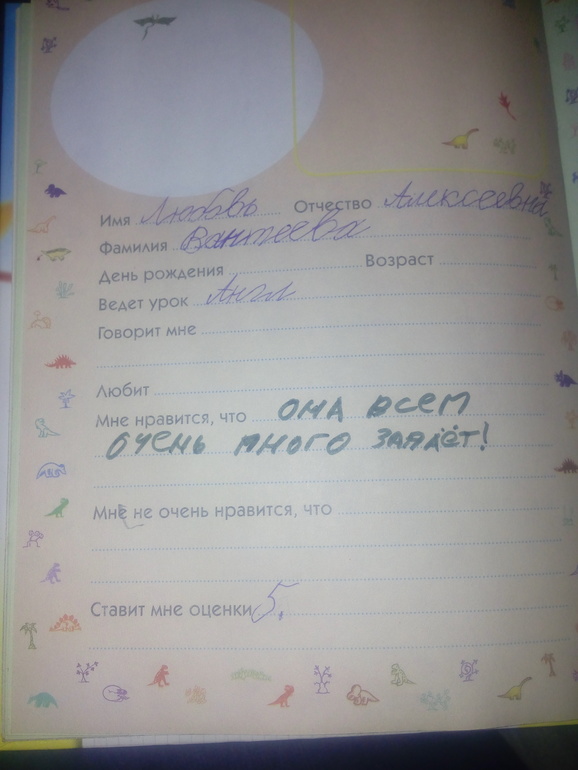 Имя Любовь Отчество Алексеевна
Фамилия Вантеева
День рождения Возраст
Ведет урок Англ
Говорит мне
Любит
Мне нравится, что она всем
очень много задаёт!
Мне не очень нравится, что
Ставит мне оценки 5.